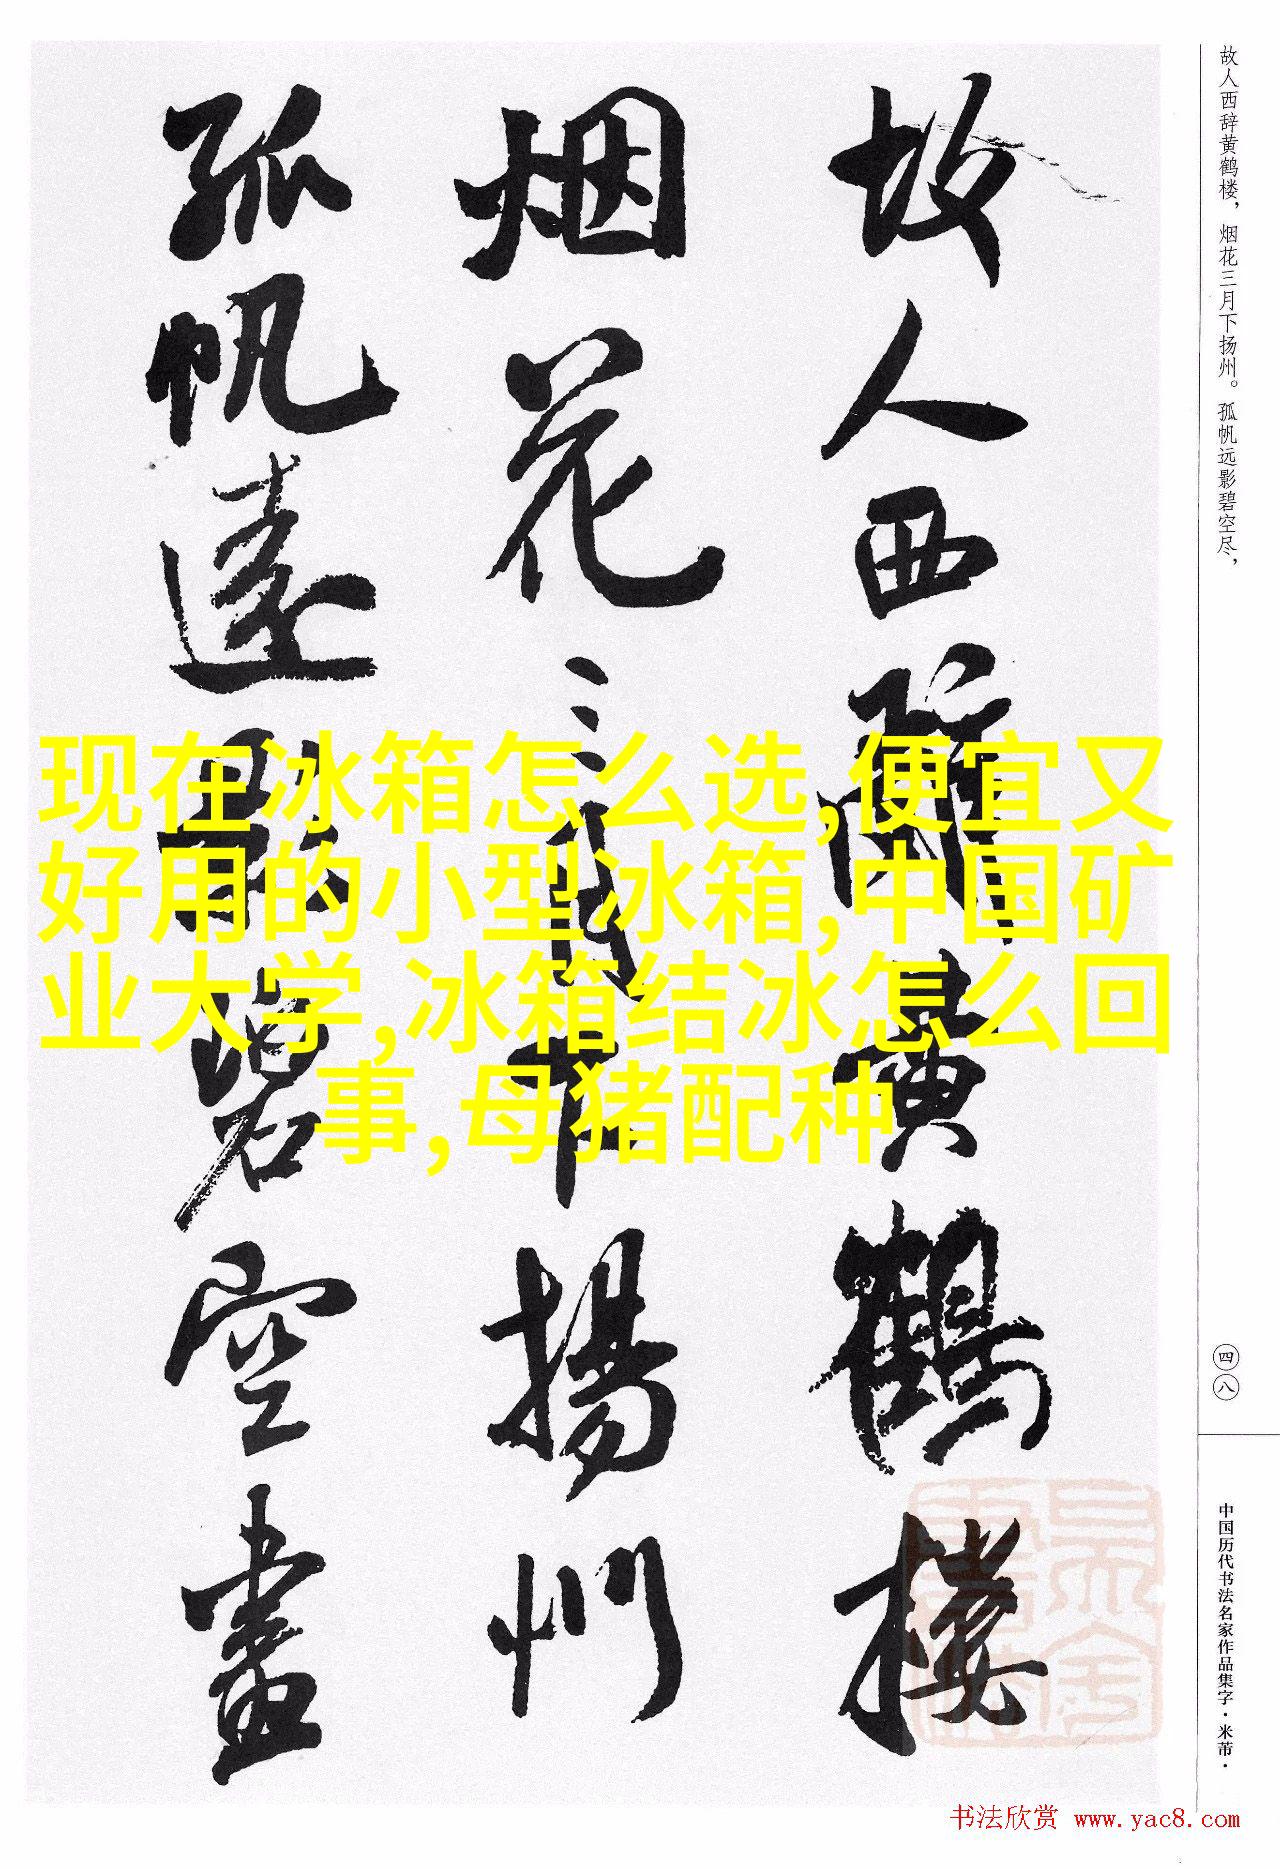 故人西辞黄鹤楼，烟花三月下扬州。孤帆远影碧空尽，
故人西辭黄鶴楼
烟花三月下揚州
孤帆遠影碧空盡
现在冰箱怎么选,便宜又
好用的小型冰箱,中国矿
业大学,冰箱结冰怎么回
事,母猪配种
四八
中国历代书法名家作品集字·米芾·
书法欣赏 www.yac8.com